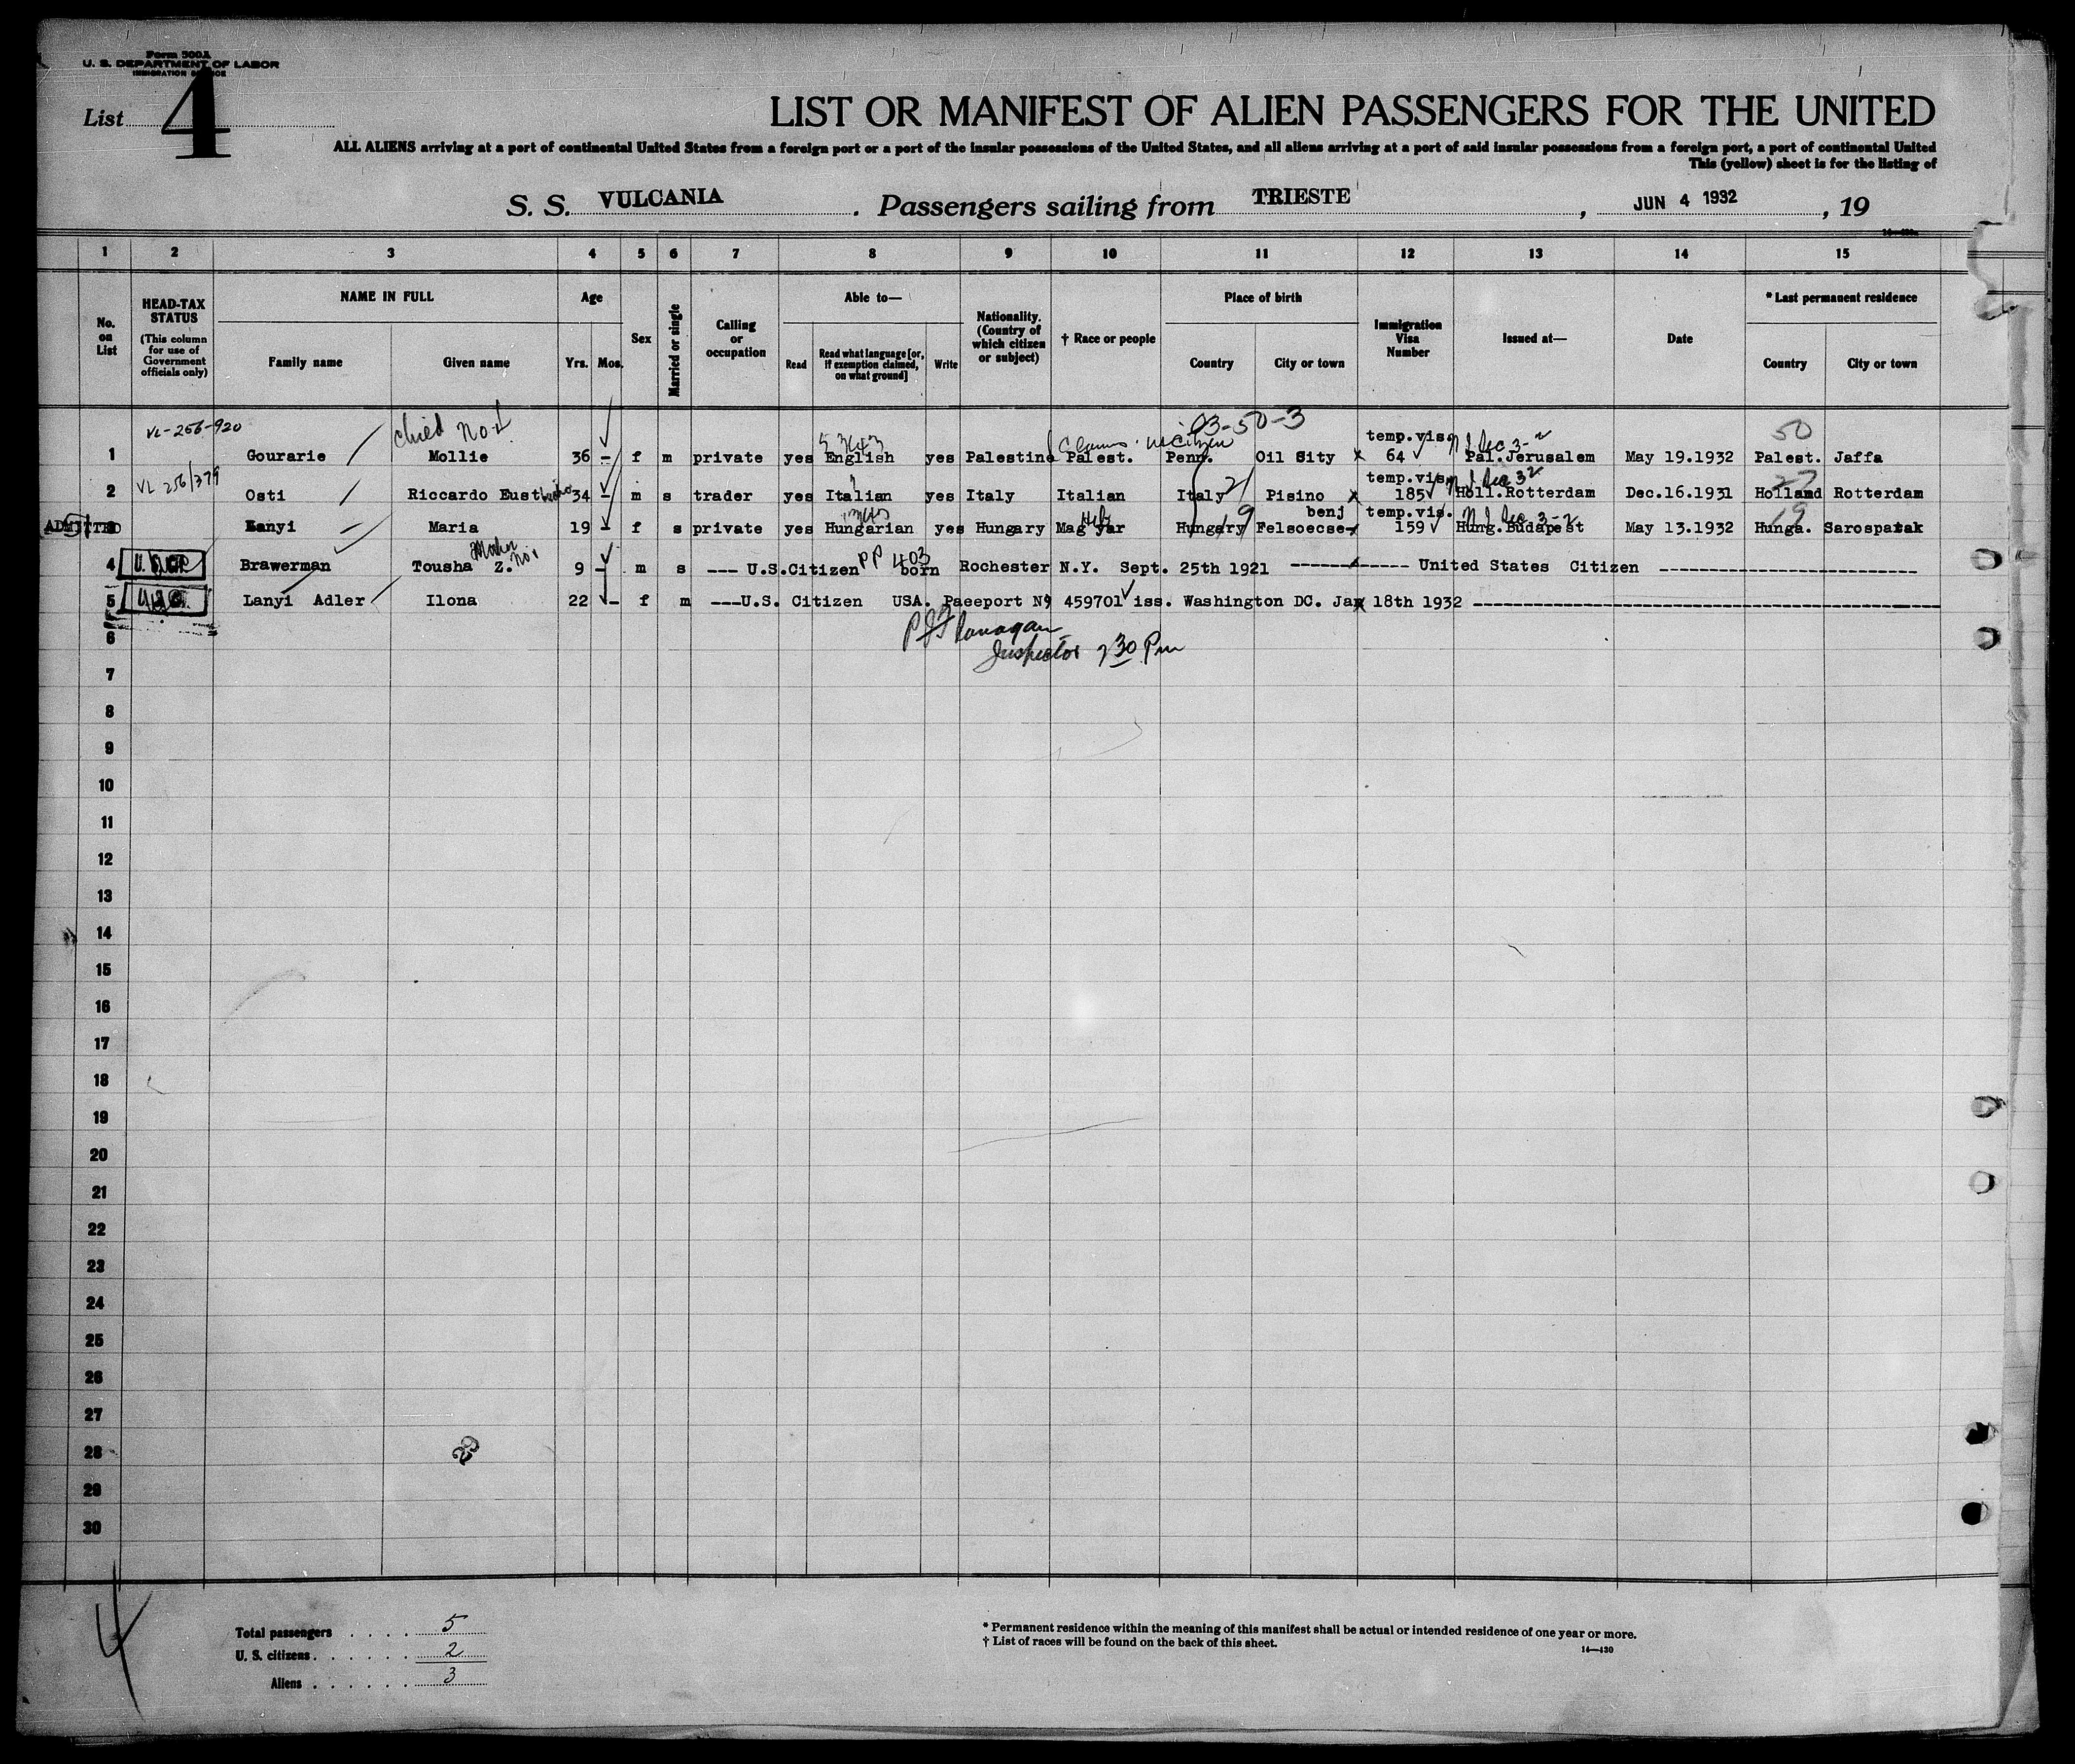 Form 500A
U. S. DEPARTMENT OF LABOR
IMMIGRATION SERVICE
List 4
LIST OR MANIFEST OF ALIEN PASSENGERS FOR THE UNITED
ALL ALIENS arriving at a port of continental United States from a foreign port or a port of the insular possessions of the United States, and all aliens arriving at a port of said insular possessions from a foreign port, a port of continental United
This (yellow) sheet is for the listing of
S. S. VULCANIA. Passengers sailing from TRIESTE, JUN 4 1932, 19
1 2 3 4 5 6 7 8 9 10 11 12 13 14 15
No. on List
HEAD-TAX STATUS
(This column for use of Government officials only)
NAME IN FULL
Family name Given name
Age
Yrs. Mos.
Sex
Married or single
Calling or occupation
Able to—
Read Read what language [or, if exemption claimed, on what ground] Write
Nationality. (Country of which citizen or subject)
† Race or people
Place of birth
Country City or town
Immigration Visa Number
Issued at—
Date
* Last permanent residence
Country City or town
VL-256-920 child No 4 03-50-3 temp.vis. 50
1 Gourarie Mollie 36 - f m private yes English yes Palestine Palest. Penn. Oil Sity 64 Pal.Jerusalem May 19.1932 Palest. Jaffa
VL 256/379 temp.vis.
2 Osti Riccardo 34 - m s trader yes Italian yes Italy Italian Italy Pisino 185 Holl.Rotterdam Dec.16.1931 Holland Rotterdam
benj temp.vis.
ADMITTED 3 Lanyi Maria 19 - f s private yes Hungarian yes Hungary Magyar Hungary Felsoecse- 159 Hung.Budapest May 13.1932 Hunga. Sarospatak
Mother No 1 PP 403
4 Brawerman Tousha Z. 9 - m s --- U.S.Citizen born Rochester N.Y. Sept. 25th 1921 ------------ United States Citizen ------------
5 Lanyi Adler Ilona 22 - f m ---U.S. Citizen USA. Paeeport No 459701 iss. Washington DC. Jan 18th 1932 ------------
6
Inspector 7 30 Pm
7
8
9
10
11
12
13
14
15
16
17
18
19
20
21
22
23
24
25
26
27
28
29
30
4
Total passengers . . . . 5
U. S. citizens . . . . . . 2
Aliens . . . . . . 3
* Permanent residence within the meaning of this manifest shall be actual or intended residence of one year or more.
† List of races will be found on the back of this sheet.
14—430